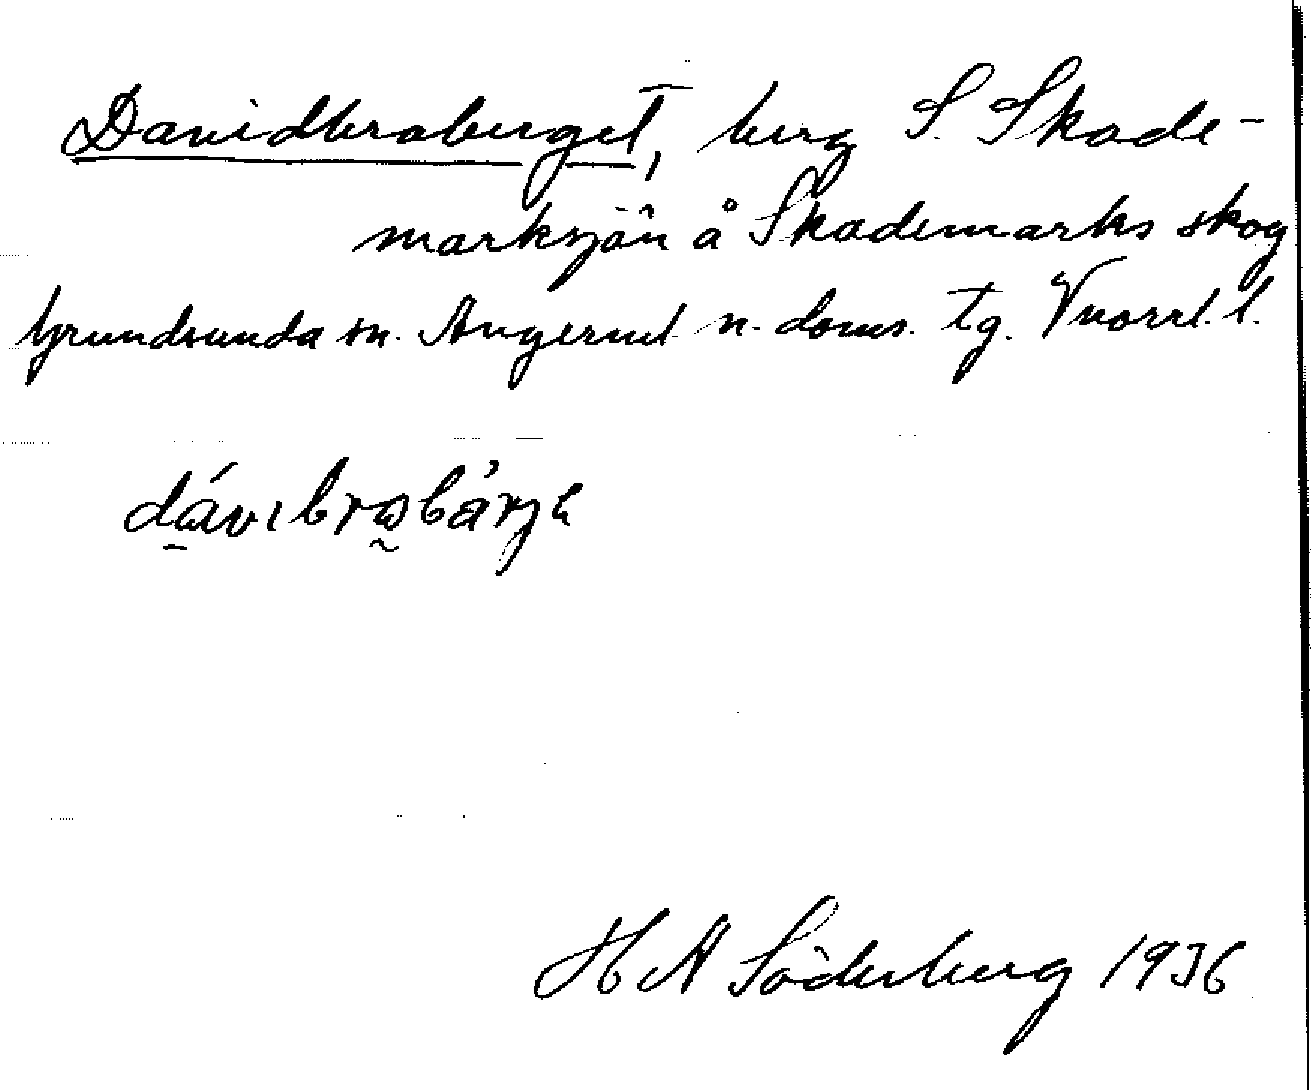 Davidbraberget, berg S. Skade-
marksjön å Skademarks skog
Grundsunda sn. Ångerml. n. doms. tg. Vnorrl. l.
dávıbrabárjɂ
H A Söderberg 1936